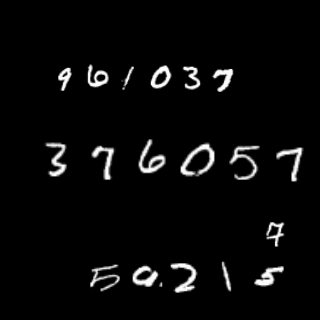 961037
376057
7
50.215